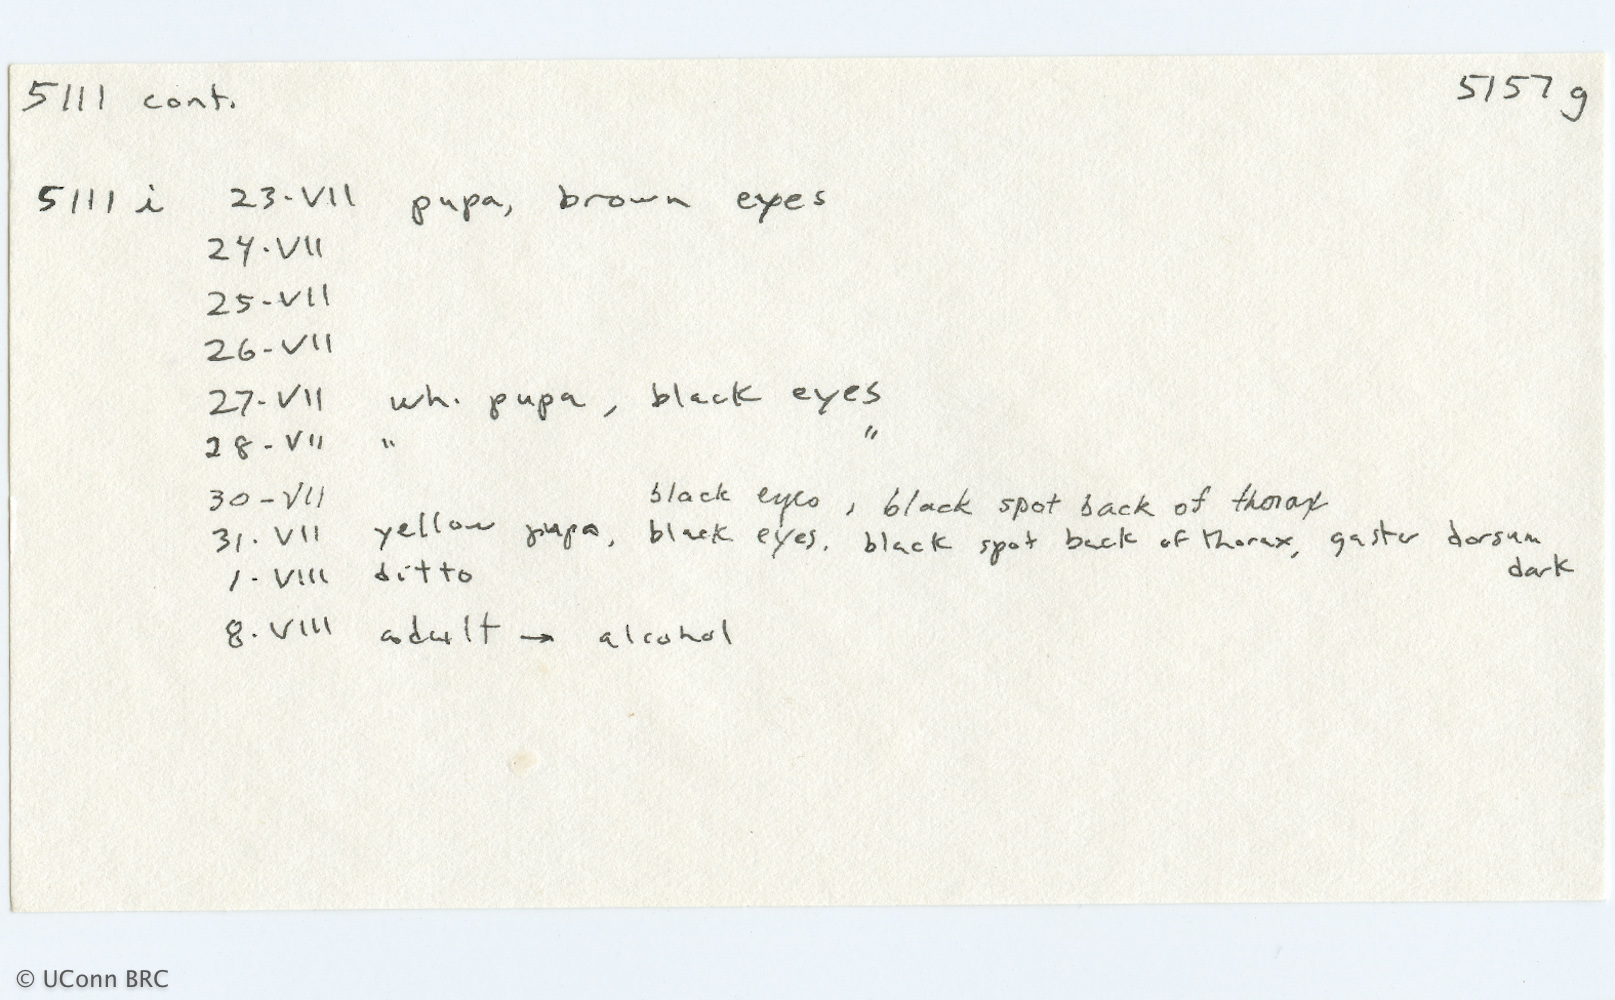 5111 cont. 5157 g
5111 i 23-VII pupa, brown eyes
24-VII
25-VII
26-VII
27-VII wh. pupa, black eyes
28-VII " "
30-VII black eyes, black spot back of thorax
31-VII yellow pupa, black eyes, black spot back of thorax, gaster dorsum
dark
1-VIII ditto
8-VIII adult → alcohol
© UConn BRC